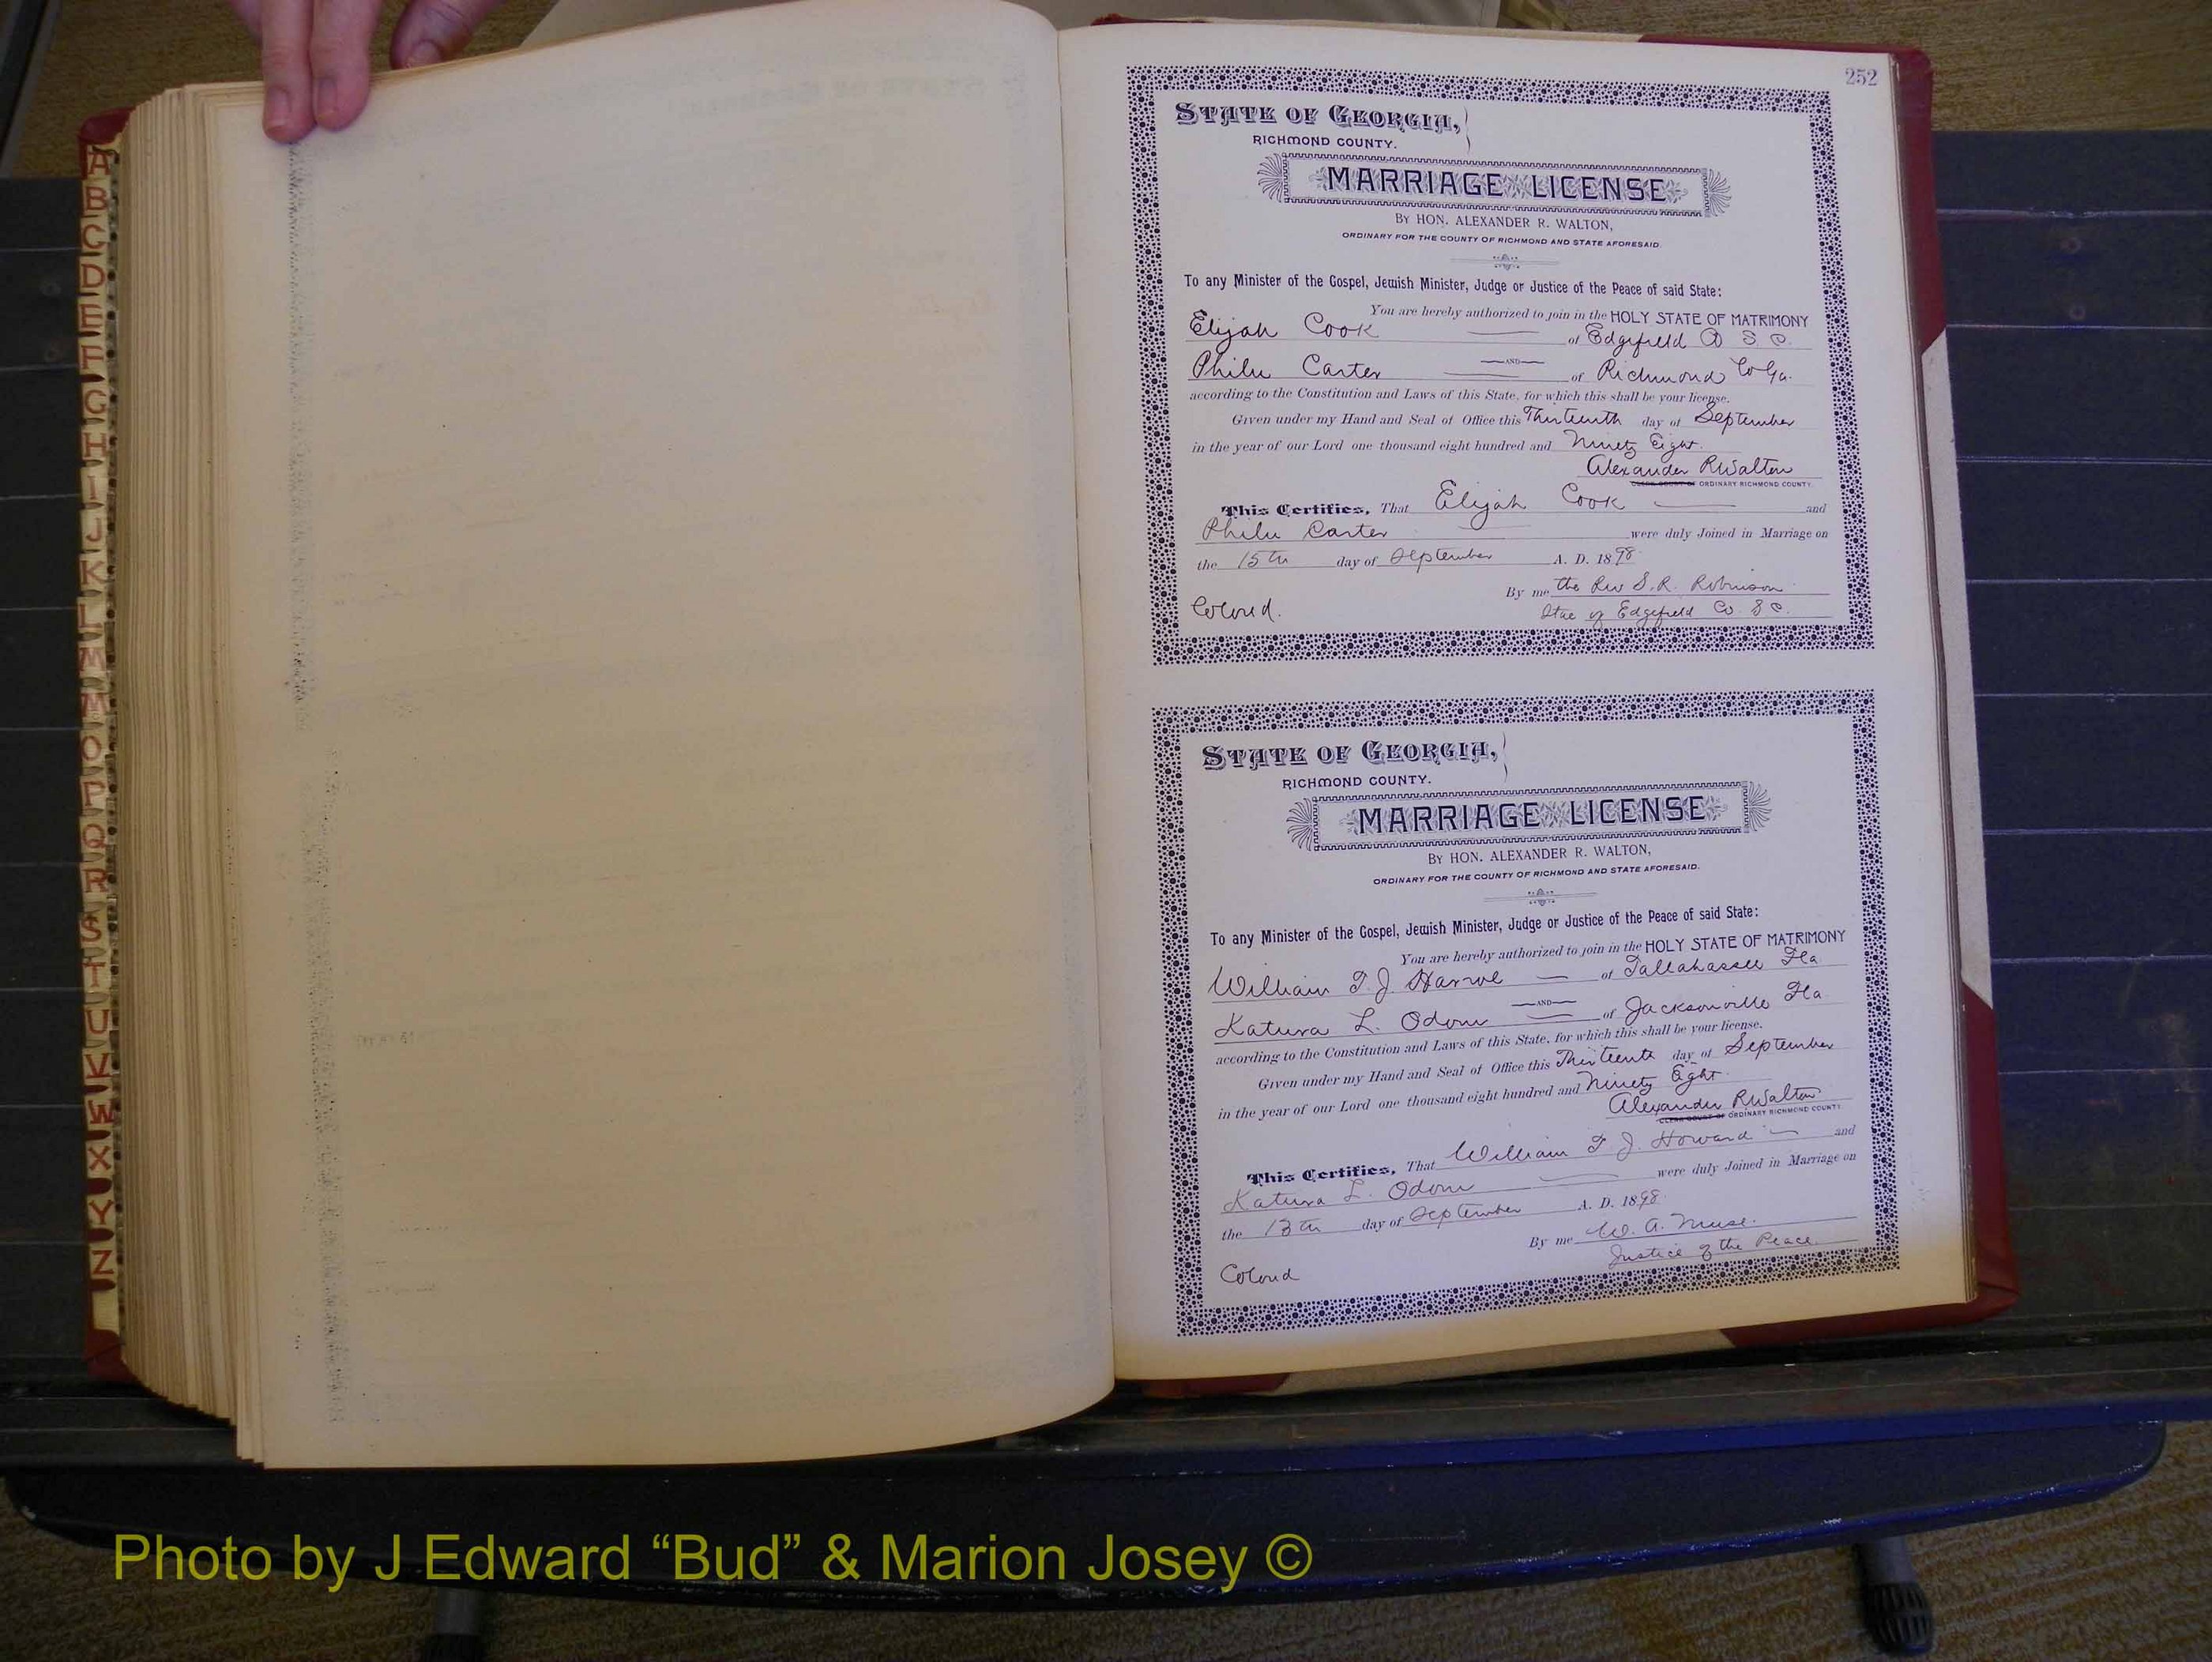 252
STATE OF GEORGIA,
RICHMOND COUNTY.
MARRIAGE LICENSE
BY HON. ALEXANDER R. WALTON,
ORDINARY FOR THE COUNTY OF RICHMOND AND STATE AFORESAID.
To any Minister of the Gospel, Jewish Minister, Judge or Justice of the Peace of said State:
You are hereby authorized to join in the HOLY STATE OF MATRIMONY
Elijah Cook of Edgefield S C.
AND
Carter of Richmond Co Ga.
according to the Constitution and Laws of this State, for which this shall be your license.
Given under my Hand and Seal of Office this Thirteenth day of September
in the year of our Lord one thousand eight hundred and Ninety Eight.
Alexander R Walton
CLERK COURT OF ORDINARY RICHMOND COUNTY.
This Certifies, That Elijah Cook and
Carter were duly Joined in Marriage on
the 15th day of September A. D. 1898
By me the Rev S. R. Robinson
Colord. of Edgefield Co. S C.
STATE OF GEORGIA,
RICHMOND COUNTY.
MARRIAGE LICENSE
BY HON. ALEXANDER R. WALTON,
ORDINARY FOR THE COUNTY OF RICHMOND AND STATE AFORESAID.
To any Minister of the Gospel, Jewish Minister, Judge or Justice of the Peace of said State:
You are hereby authorized to join in the HOLY STATE OF MATRIMONY
William T. J. of Tallahassee Fla
AND
Katura L. Odom of Jacksonville Fla
according to the Constitution and Laws of this State, for which this shall be your license.
Given under my Hand and Seal of Office this Thirteenth day of September
in the year of our Lord one thousand eight hundred and Ninety Eight.
Alexander R Walton
CLERK COURT OF ORDINARY RICHMOND COUNTY.
This Certifies, That William T J. Howard and
Katura L. Odom were duly Joined in Marriage on
the 13th day of September A. D. 1898.
By me W. A. Muse.
Justice of the Peace.
Colord
A
B
C
D
E
F
G
H
I
J
K
L
M
M
O
P
Q
R
S
T
U
V
W
X
Y
Z
Photo by J Edward “Bud” & Marion Josey ©